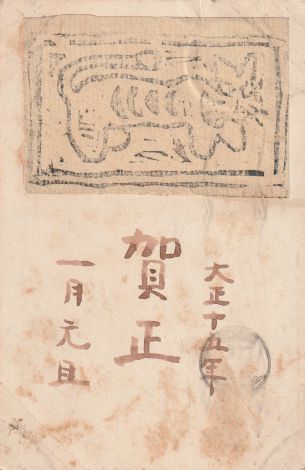 大正十五年
賀正
一月元旦